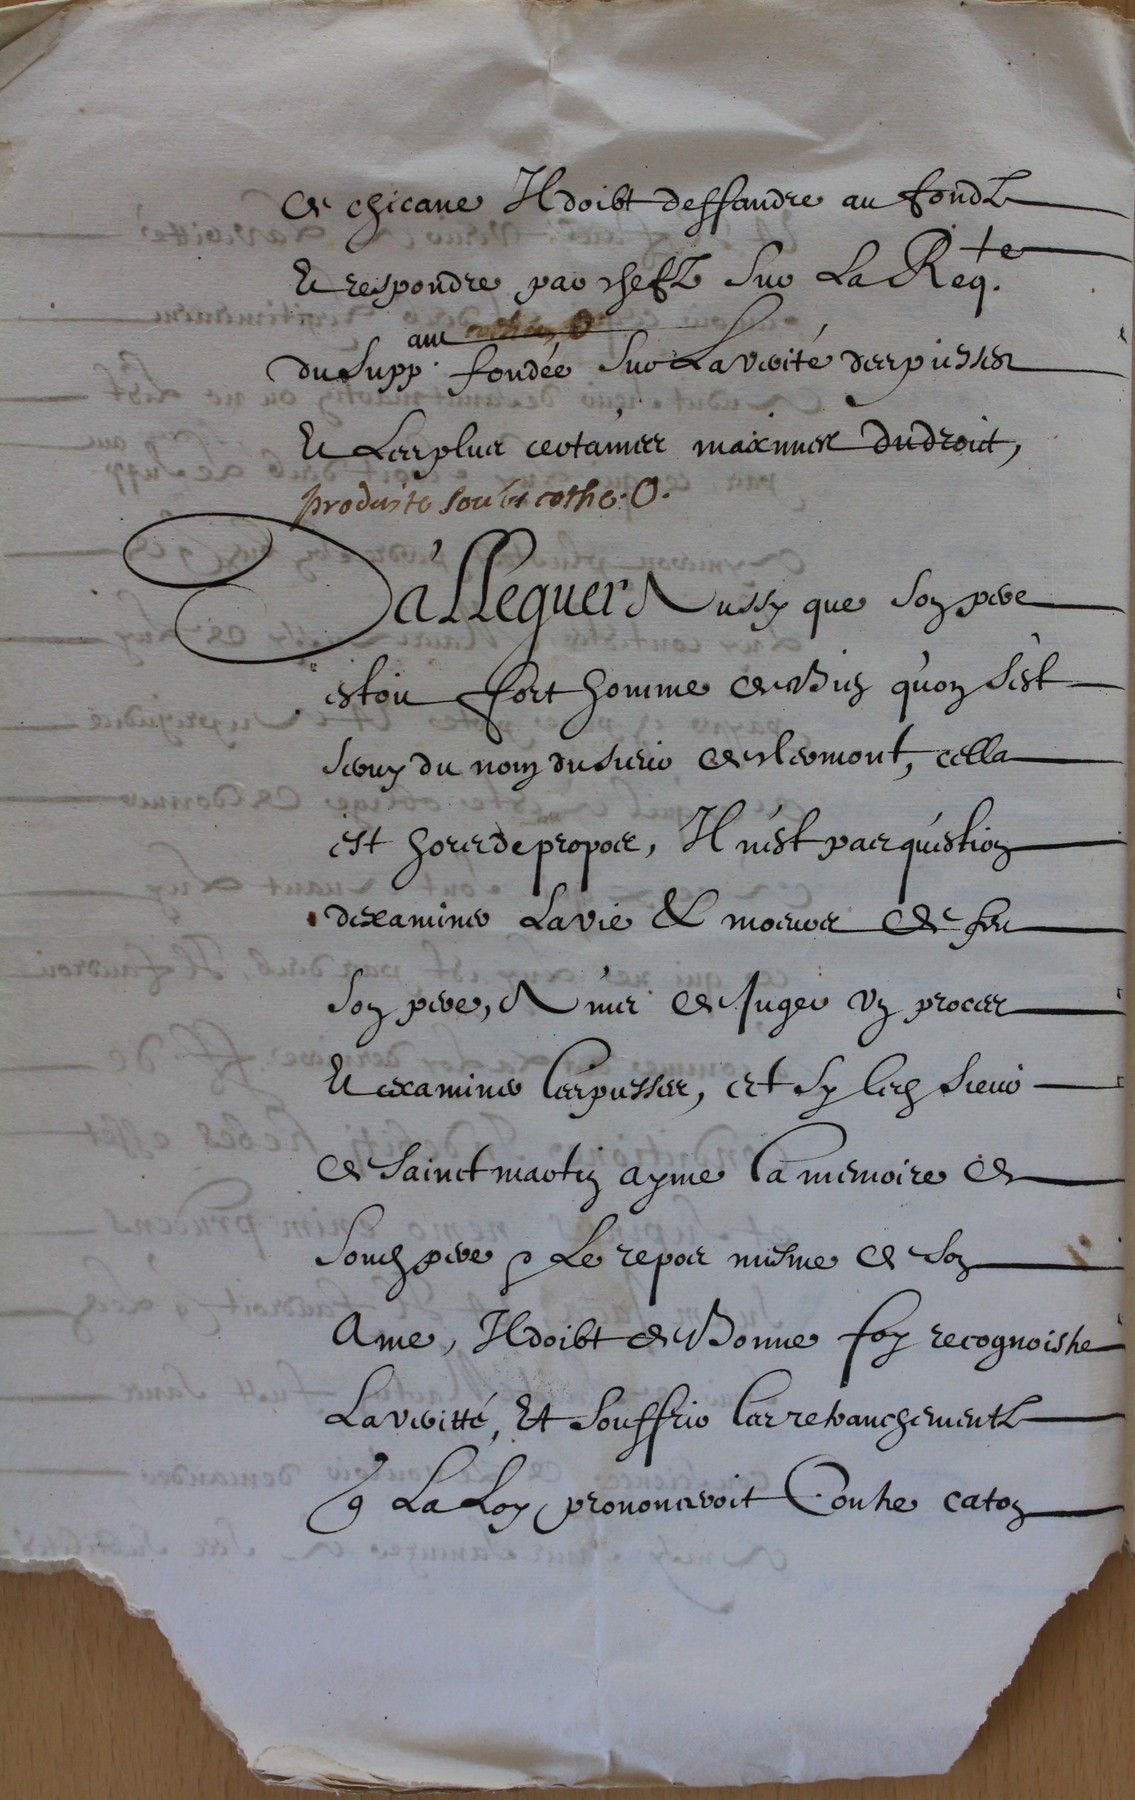 de chicane Il doibt deffandre au fondz
Et respondre par chefz Sur La Req.te
du Supp.ant fondée Sur La verité des piesses
Et Les plus certaines maximes du droict,
produite soubz cothe. O.
D'alleguer Aussy que Son pere
estoit fort homme de Bien quon s'est
servy du nom du sieur de clermont, cella
est hors de propos, Il n'est pas question
dexaminer La vie & moeurs de feu
Son pere, Ains de Juger un proces
Et examiner les piesses, et sy led sieur
de Sainct martin ayme la memoire de
Sond pere & Le repos mesme de Son
Ame, Il doibt de Bonne foy recognoistre
La veritté, Et Souffrir les retranchementz
q La Loy prononceroit Contre caton